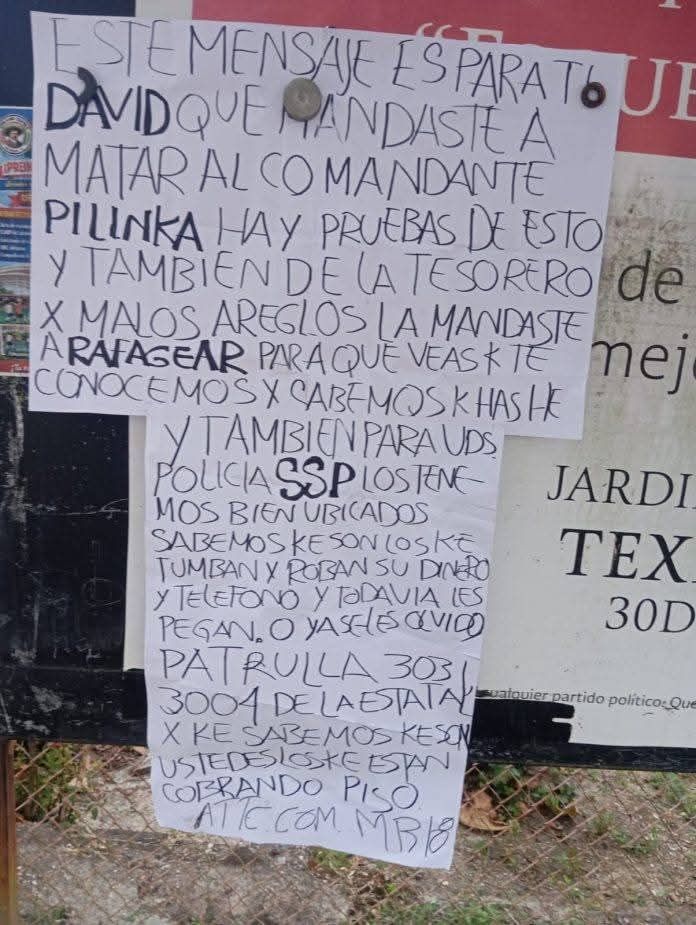 ESTE MENSAJE ES PARA TI
DAVID QUE MANDASTE A
MATAR AL COMANDANTE
PILINKA HAY PRUEBAS DE ESTO
Y TAMBIEN DE LA TESORERO
X MALOS AREGLOS LA MANDASTE
A RAFAGEAR PARA QUE VEAS K TE
CONOCEMOS X SABEMOS K HAS HE
Y TAMBIEN PARA UDS
POLICIA SSP LOS TENE-
MOS BIEN UBICADOS
SABEMOS KE SON LOS KE
TUMBAN Y ROBAN SU DINERO
Y TELEFONO Y TODAVIA LES
PEGAN. O YA SE LES OLVIDO
PATRULLA 303
3004 DE LA ESTATAL
X KE SABEMOS KE SON
USTEDES LOS KE ESTAN
COBRANDO PISO.
ATTE. COM. M B18
de
mej
JARDI
TEX
30D
cualquier partido político. Que